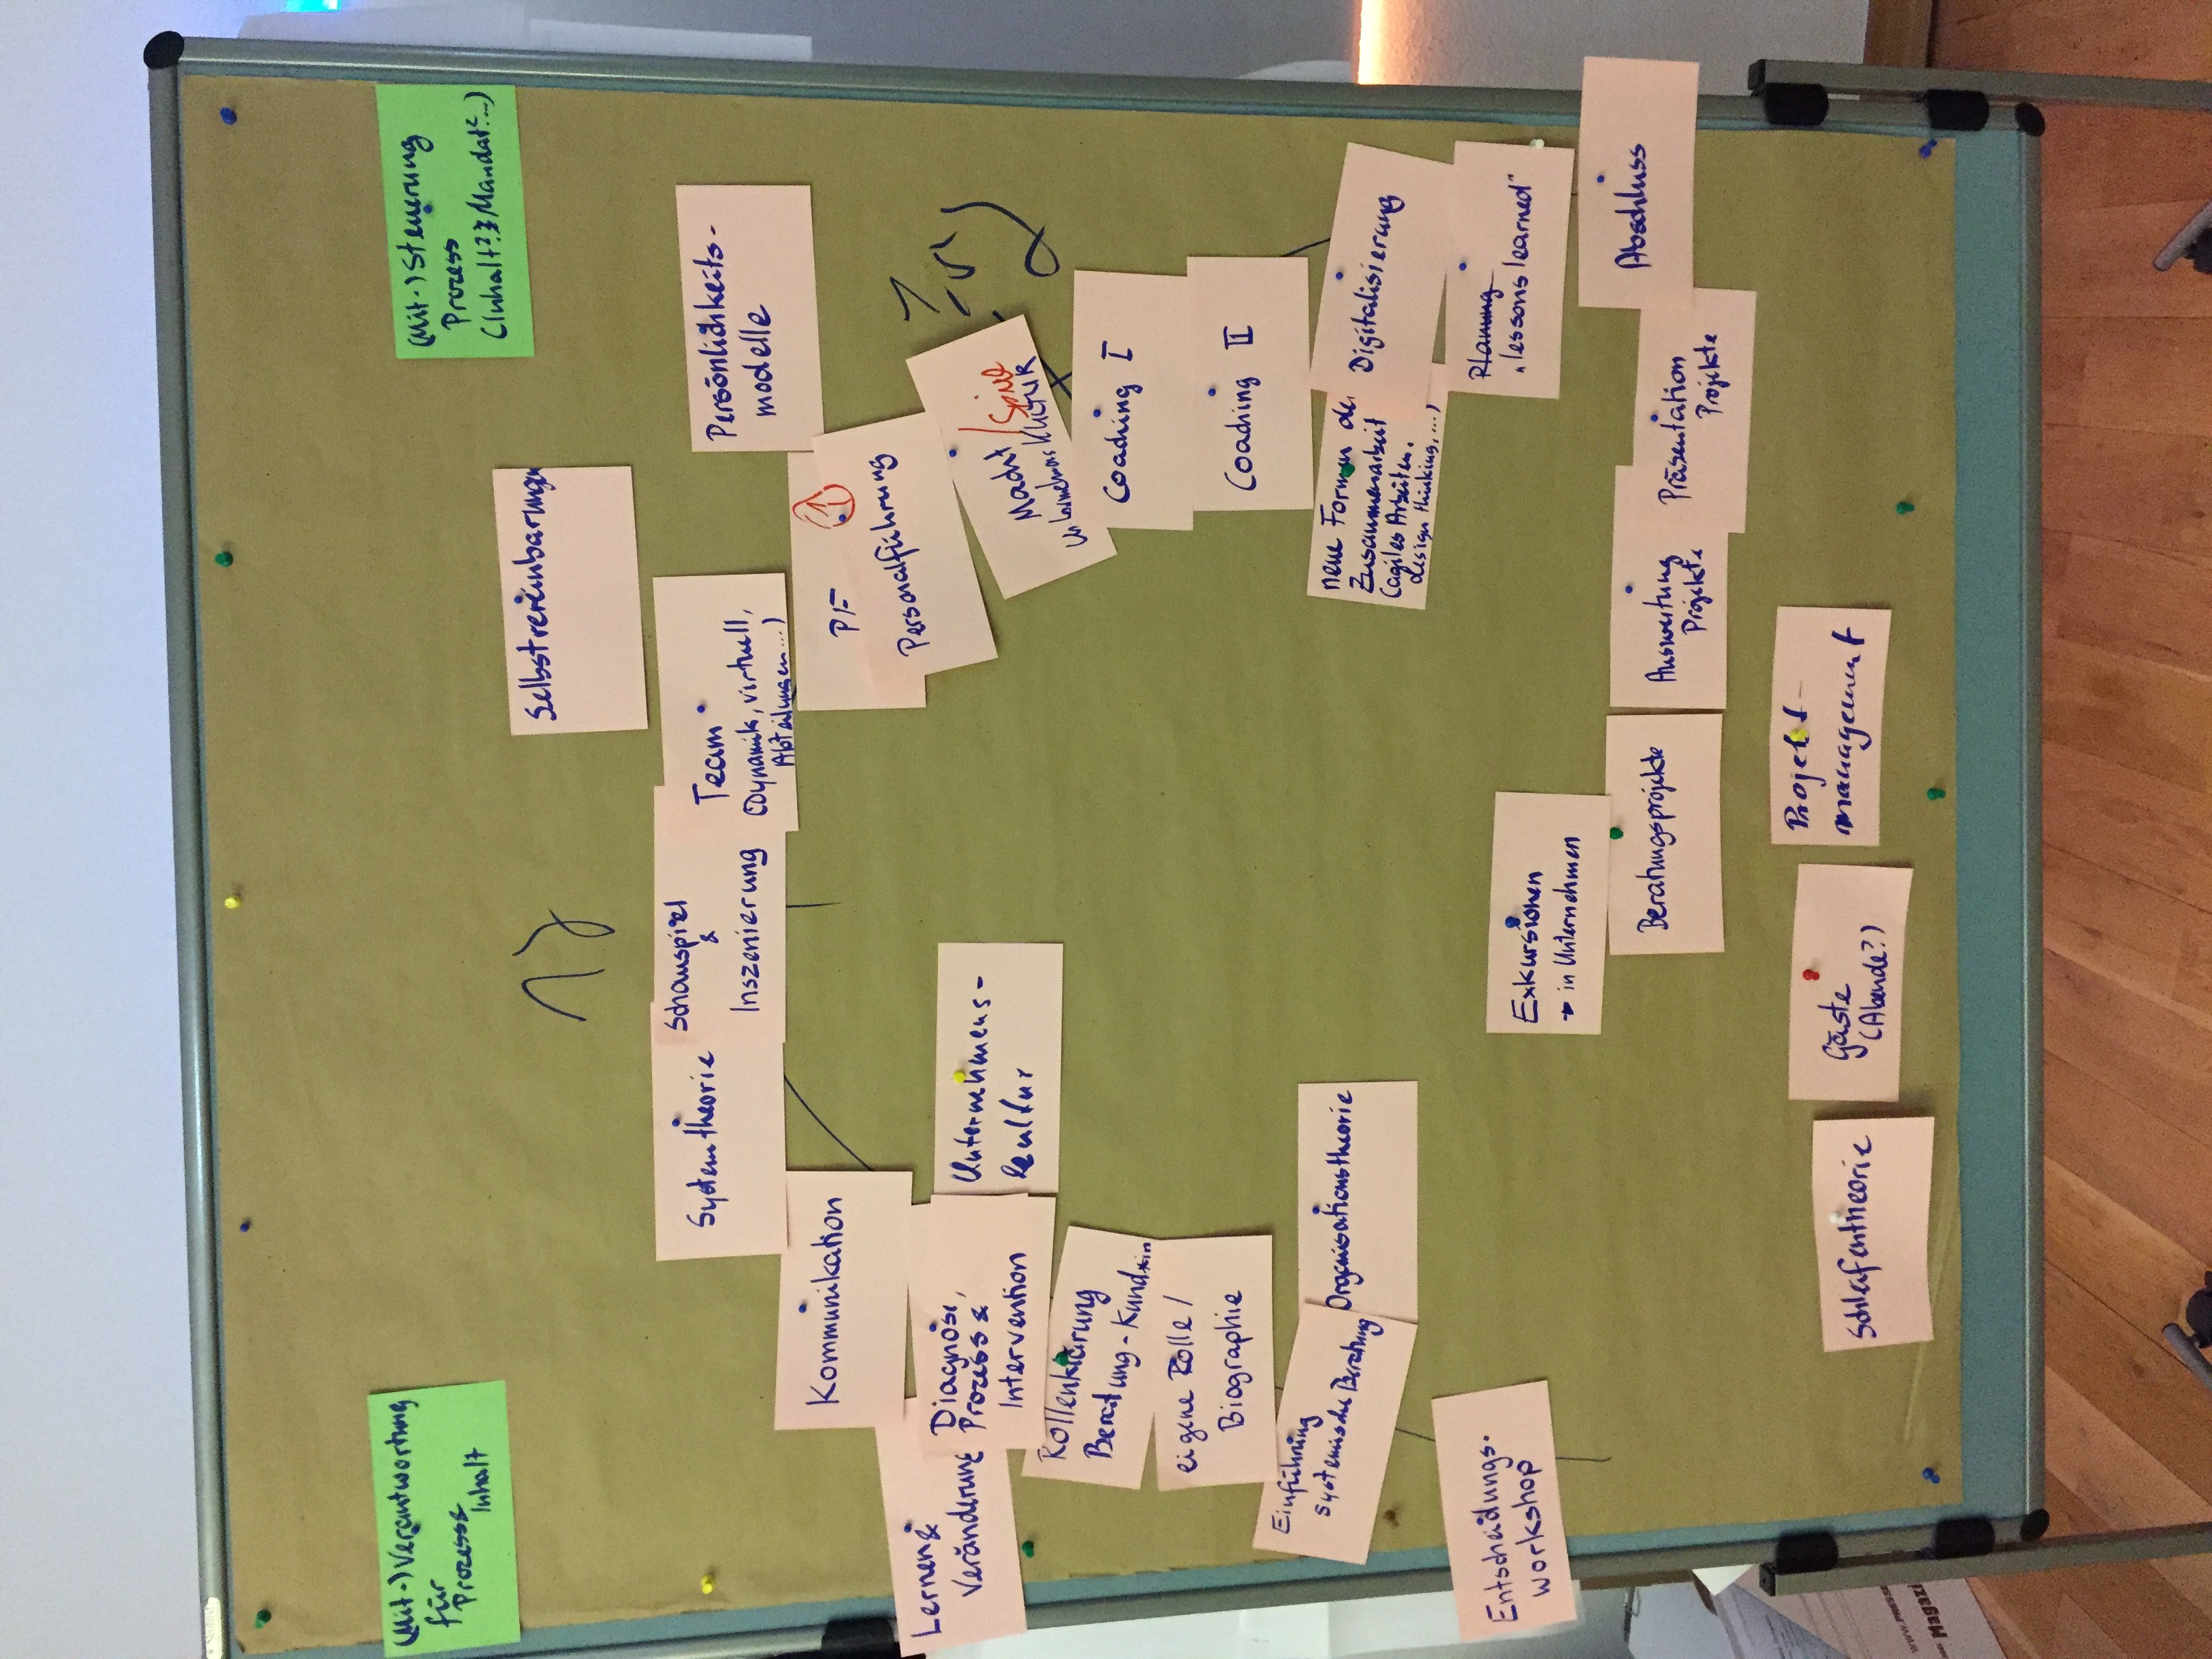 (Mit-) Verantwortung
für
Prozess &
Inhalt
(Mit-) Steuerung
Prozess
(Inhalt? Mandat? ...)
17
Selbstvereinbarungen
Systemtheorie
Schauspiel
&
Inszenierung
Team
(Dynamik, virtuell,
Abteilungen ...)
Persönlichkeits-
modelle
Kommunikation
PF 1
Personalführung
Lernen &
Veränderung
Diagnose,
Prozess &
Intervention
Unternehmens-
kultur
Macht / Spiel
Unternehmens KULTUR
Rollenklärung
Beratung - Kund*in
Coaching I
eigene Rolle /
Biographie
Coaching II
Einführung
systemische Beratung
Organisationstheorie
neue Formen der
Zusammenarbeit
(agiles Arbeiten,
design thinking, ...)
Digitalisierung
Entscheidungs-
workshop
Planung
„lessons learned"
Exkursionen
→ in Unternehmen
Beratungsprojekte
Auswertung
Projekte
Präsentation
Projekte
Abschluss
Schleifentheorie
Gäste
(Abende?)
Projekt-
management
www.PRESSE
Magazi